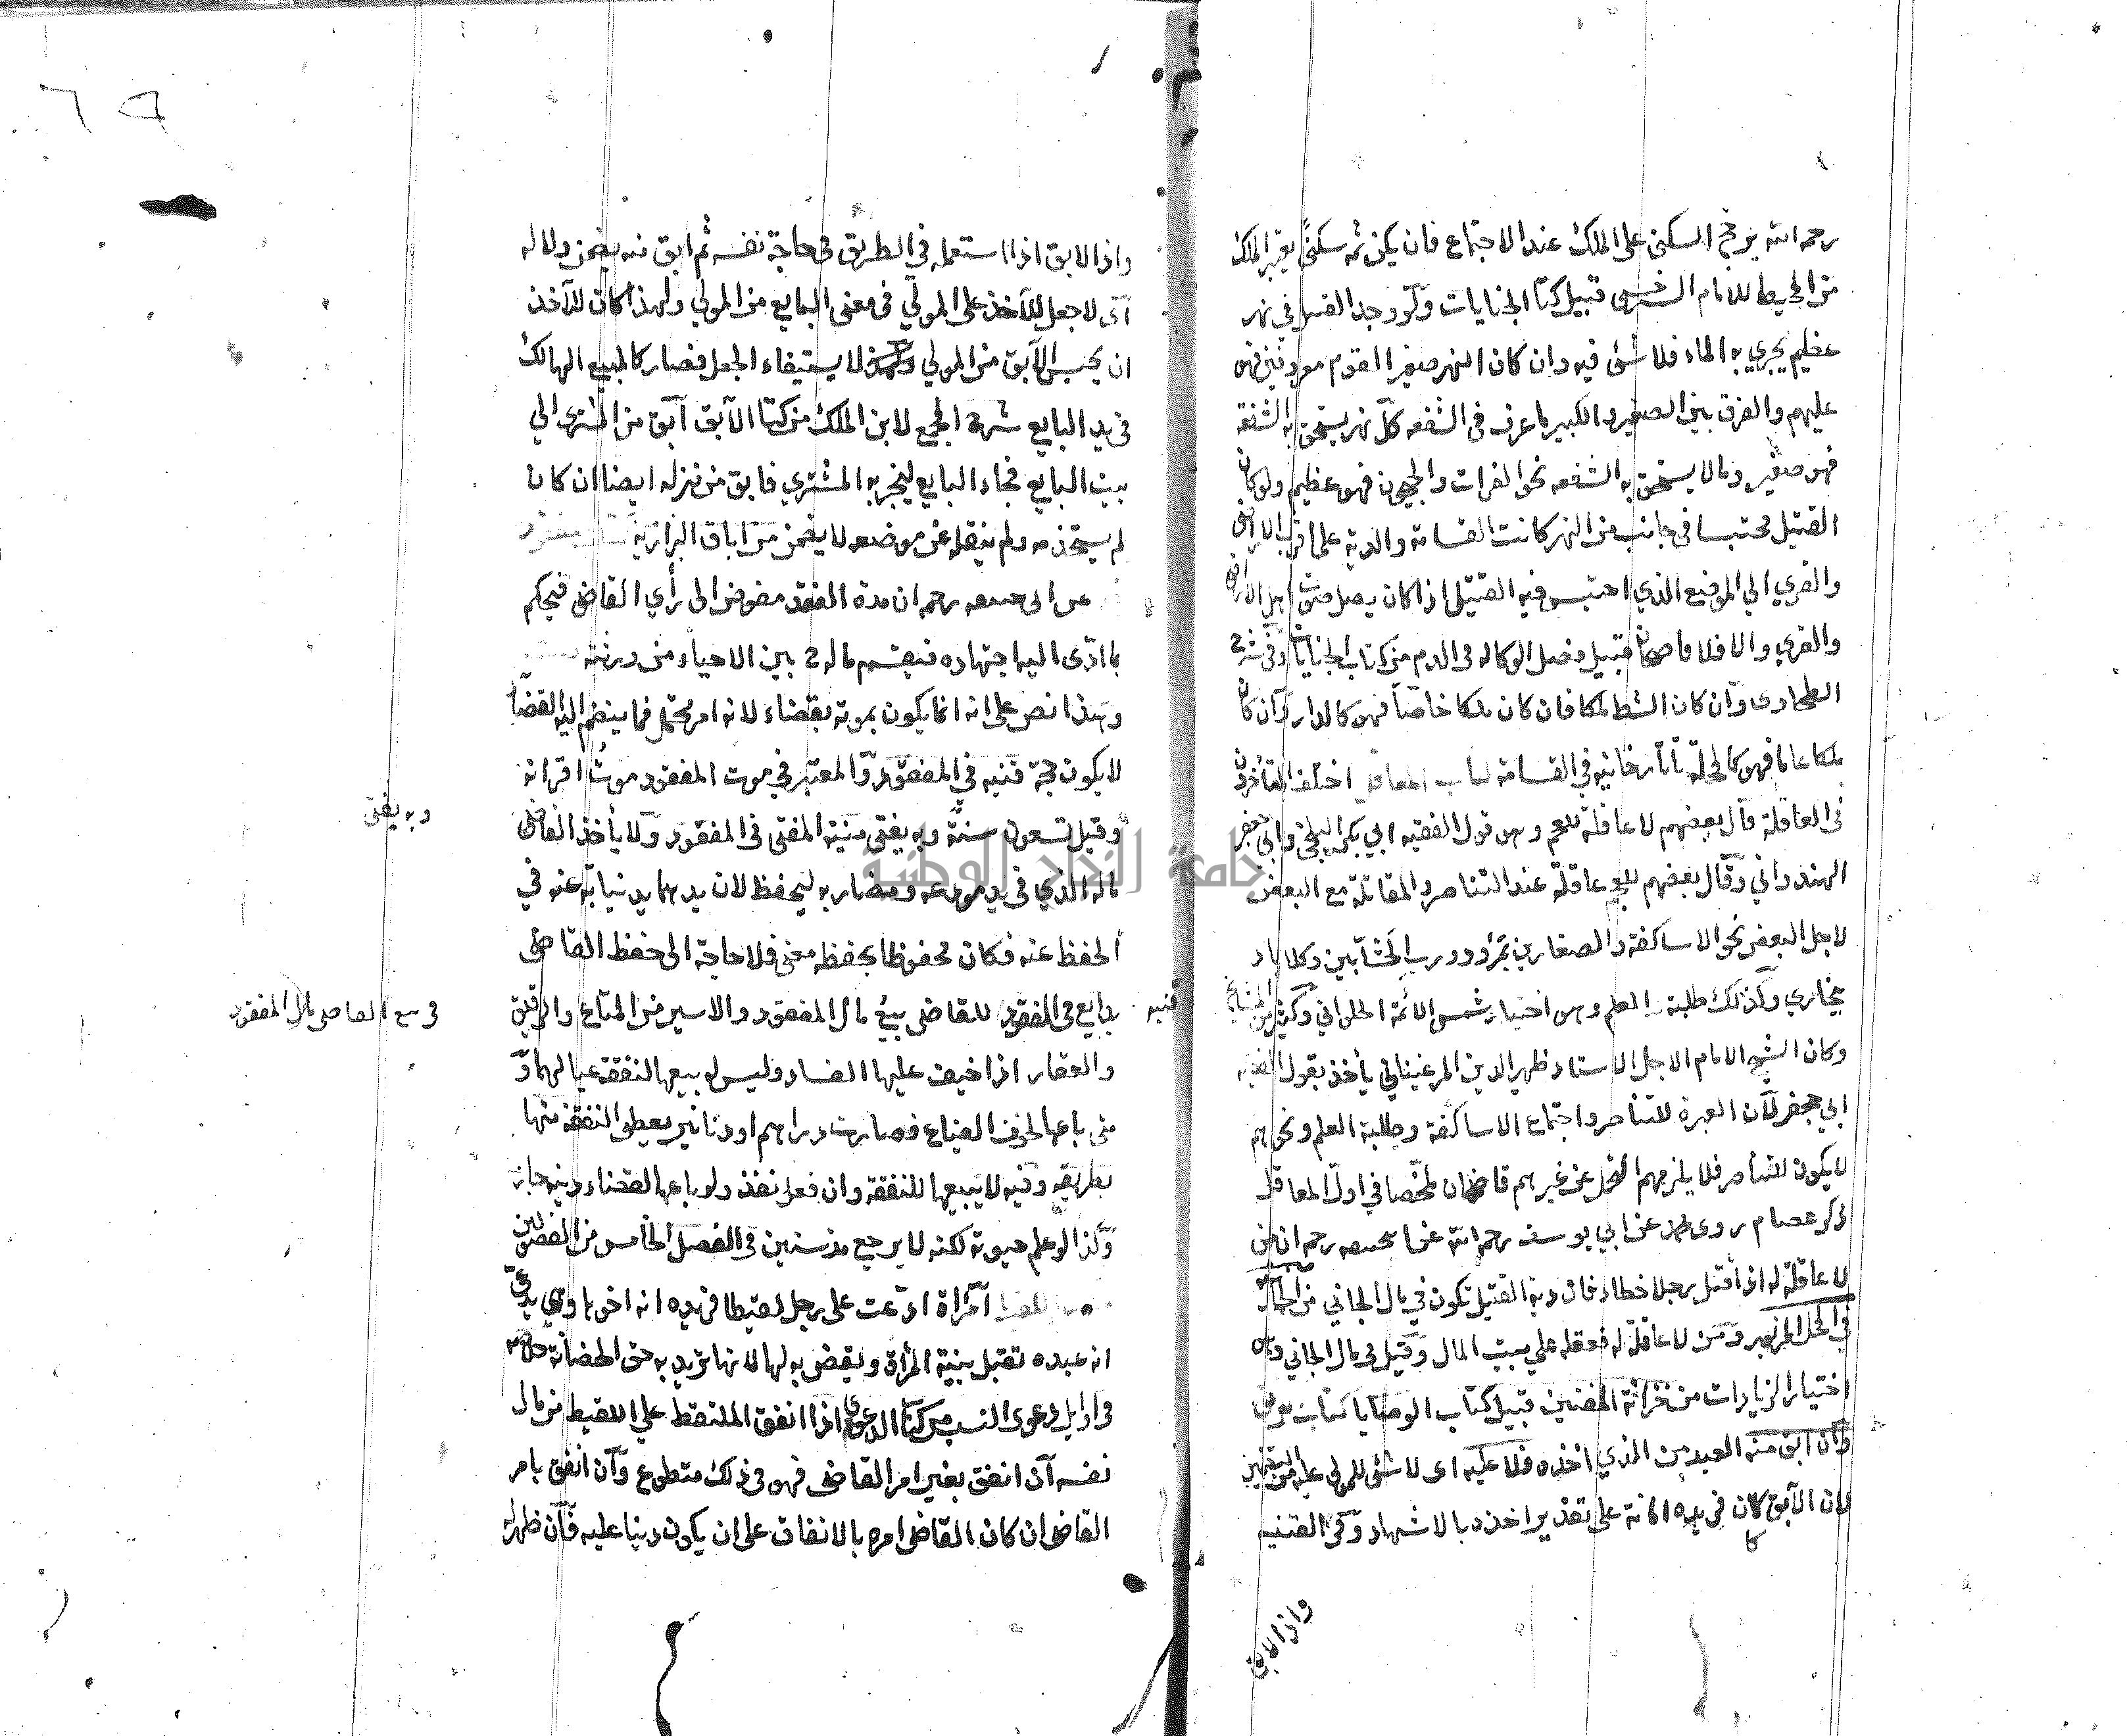 رحمه الله يرجح السكنى على الملك عند الاجتماع فان يكن ثمه سكنى يعتبر الملك
من المحيط للامام السرخسي قبيل كتا الجنايات ولو وجد القتيل في نهر
عظيم يجري به الماء فلا شئ فيه وان كان النهر صغير القوم معروفين فهو
عليهم والفرق بين الصغير والكبير ما عرف فى الشفعه كل نهر يستحق به الشفعة
فهو صغير ومالا يستحق به الشفعه نحو الفرات والجيحون فهو عظيم ولو كان
القتيل محتبسا في جانب من النهر كانت القسامة والدية على اقرب الاراضى
والقري الي الموضع الذي احتبس فيه القتيل اذا كان يصل صوت اهل الاراضى
والقري والا فلا قاضيخان قبيل فصل الوكاله فى الدم من كتاب الجنايات وفى شرح
الطحاوى وان كان الشط ملكا فان كان ملكا خاصا فهو كالدار وان كان
ملكا عاما فهو كالمحلة تاتارخانيه في القسامة كتاب المعاقل اختلف المتأخرون
فى العاقلة قال بعضهم لا عاقلة للعجم وهو قول الفقيه ابي بكر البلخى وابى جعفر
الهندواني وقال بعضهم للعجم عاقلة عند التناصر والمقاتلة مع البعض
لاجل البعض نحو الاساكفة والصفارين بمرو ودرب الخشابين وكلاباد
ببخاري وكذلك طلبة العلم وهو اختيار شمس الائمة الحلواني وكثير من المشايخ
وكان الشيخ الامام الاجل الاستاد ظهير الدين المرغيناني يأخذ بقول الفقيه
ابي جعفر لان العبرة للتناصر واجتماع الاساكفة وطلبة العلم ونحوهم
لا يكون للتناصر فلا يلزمهم التحمل عن غيرهم قاضيخان ملخصا في اول المعاقل
ذكر عصام روى محمد عن ابي يوسف رحمه الله عن ابى حنيفه رحمه ان من
لا عاقلة له اذا قتل رجلا خطاء فان دية القتيل تكون في مال الجاني من
فى المحل المزبور ومن لا عاقلة له فعقله علي بيت المال وقيل فى مال الجاني
اختيار الزيادات من خزانة المفتين قبيل كتاب الوصايا كتاب
وان ابق منه العبد من الذي اخذه فلا عليه اى لا شئ للمولى عليه من
لان الآبق كان في يده امانة على تقدير اخذه بالاشهاد وفى القنيه
واذا الابق
واذا الابق اذا استعمله في الطريق فى حاجة نفسه ثم ابق منه يضمن ولا له
اى لا جعل للآخذ على المولي فى معنى البايع من المولي ولهذا كان للآخذ
ان يحبس الآبق من المولي لا يستيفاء الجعل فصار كالمبيع الهالك
فى يد البايع شرح المجمع لابن الملك من كتا الآبق آبق من المشترى الي
بيت البايع فجاء البايع ليخبر به المشتري فابق من منزله ايضا ان كان
لم يستخدمه ولم ينقله عن موضعه لا يضمن من اباق البزازية كتاب مفقود
عن ابى حنيفه رحمه ان مدة الفقد مفوض الى رأي القاضى فيحكم
بما ادى اليه اجتهاده فيقسم ماله ح بين الاحياء من ورثته
وهذا نص على انه انما يكون بموته بقضاء لانه امر محتمل فما ينضم اليه القضاء
لا يكون حجة قنيه في المفقود والمعتبر في موت المفقود موت اقرانه
وقيل تسعون سنة وبه يفتى منية المفتى فى المفقود ولا يأخذ القاضى
وبه يفتى
ماله الذي فى يد مودعه ومضاربه ليحفظ لان يدهما يد نيابة عنه في
الحفظ عنه فكان محفوظا بحفظه معنى فلا حاجة الى حفظ القاضى
قنيه
بدايع فى المفقود للقاضى بيع مال المفقود والاسير من المتاع والرقيق
فى بيع القاضى مال المفقود
والعقار اذا خيف عليها الفساد وليس له بيعها لنفقة عيالهما و
متى باعها لخوف الضياع فصارت دراهم او دنانير يعطى النفقة منها
بطريقه وفيه لا يبيعها للنفقة وان فعل نفذ ولو باعها لقضاء دينه جاز
وكذا لو علم حيوته لكنه لا يرجع مذ سنين فى الفصل الخامس من الفصولين
امرأة ادعت على رجل لقيطا فى يده انه اخوها وذي اليد يدعى
انه عبده تقبل بينة المرأة ويقضى به لها لانها تريد به حق الحضانة
فى اوايل دعوى النسب من كتا الدعوى اذا انفق الملتقط علي اللقيط من مال
نفسه ان انفق بغير امر القاضى فهو فى ذلك متطوع وان انفق بامر
القاضى ان كان القاضى امره بالانفاق على ان يكون دينا عليه فان ظهر له
جامعة النجاح الوطنية